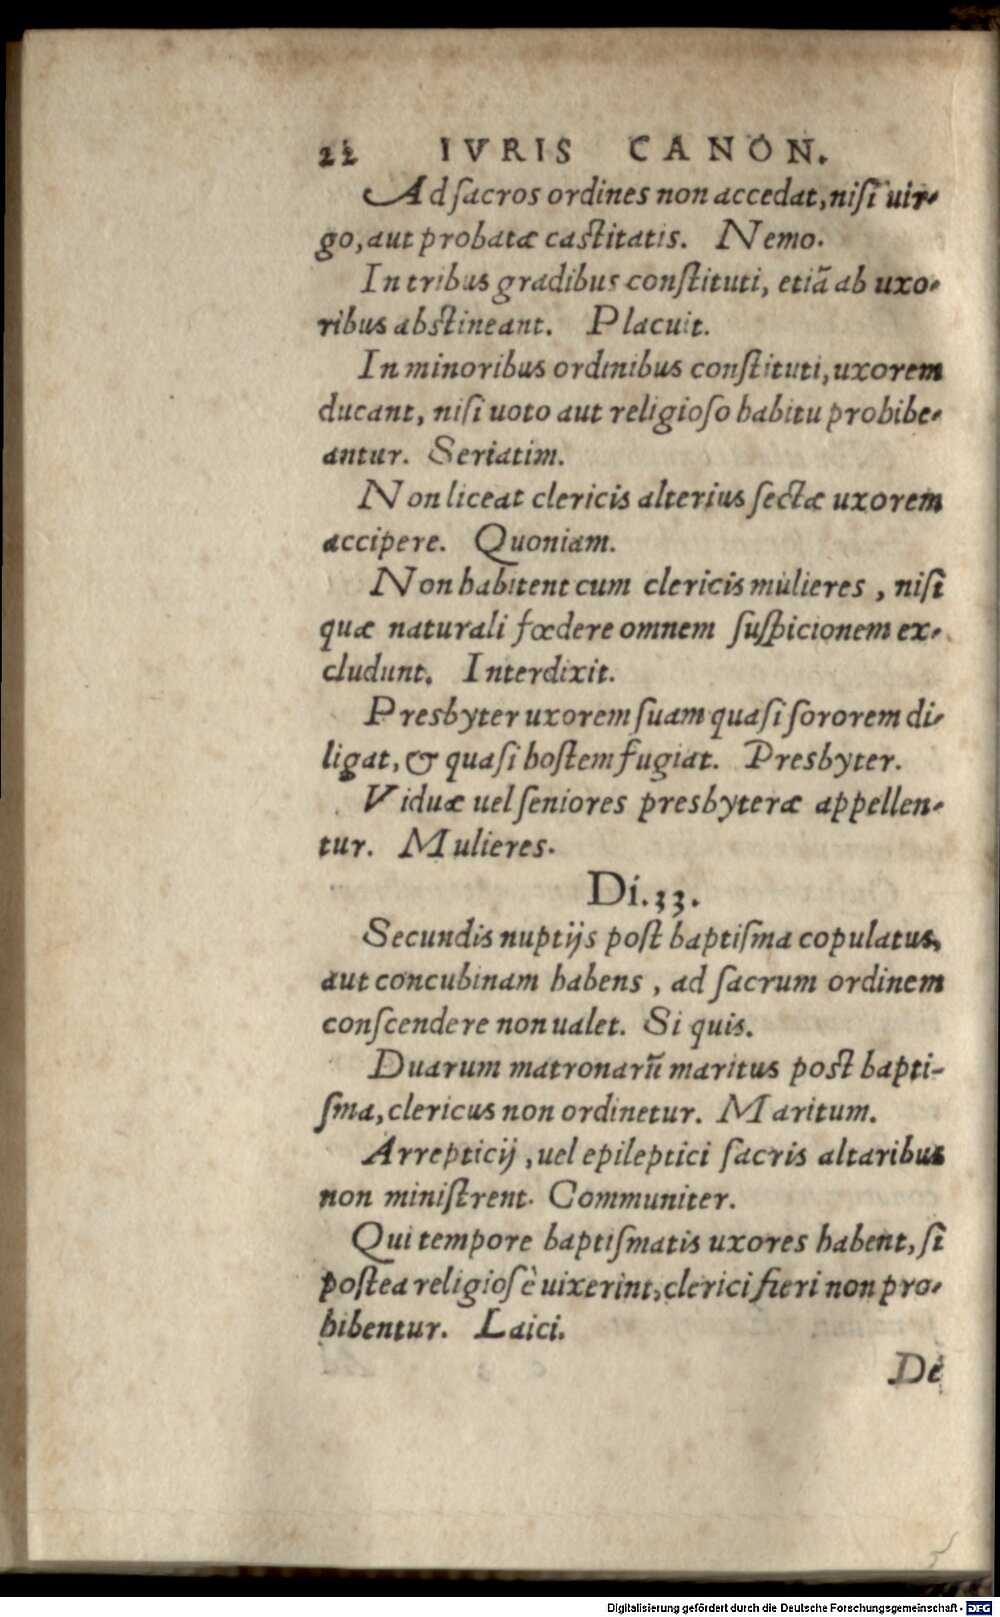 22 IVRIS CANON.
Ad ſacros ordines non accedat, niſi uir-
go, aut probatæ caſtitatis. Nemo.
In tribus gradibus conſtituti, etiã ab uxo-
ribus abſtineant. Placuit.
In minoribus ordinibus conſtituti, uxorem
ducant, niſi uoto aut religioſo habitu prohibe-
antur. Seriatim.
Non liceat clericis alterius ſectæ uxorem
accipere. Quoniam.
Non habitent cum clericis mulieres, niſi
quæ naturali fœdere omnem ſuſpicionem ex-
cludunt. Interdixit.
Presbyter uxorem ſuam quaſi ſororem di-
ligat, & quaſi hoſtem fugiat. Presbyter.
Viduæ uel ſeniores presbyteræ appellen-
tur. Mulieres.
Di. 33.
Secundis nuptijs poſt baptiſma copulatus,
aut concubinam habens, ad ſacrum ordinem
conſcendere non ualet. Si quis.
Duarum matronarũ maritus poſt bapti-
ſma, clericus non ordinetur. Maritum.
Arrepticij, uel epileptici ſacris altaribus
non miniſtrent. Communiter.
Qui tempore baptiſmatis uxores habent, ſi
poſtea religioſè uixerint, clerici fieri non pro-
hibentur. Laici.
De
Digitalisierung gefördert durch die Deutsche Forschungsgemeinschaft - DFG